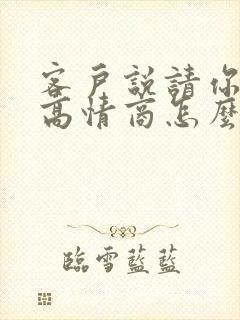 客戶說請你
高情商怎麼
臨雪藍藍